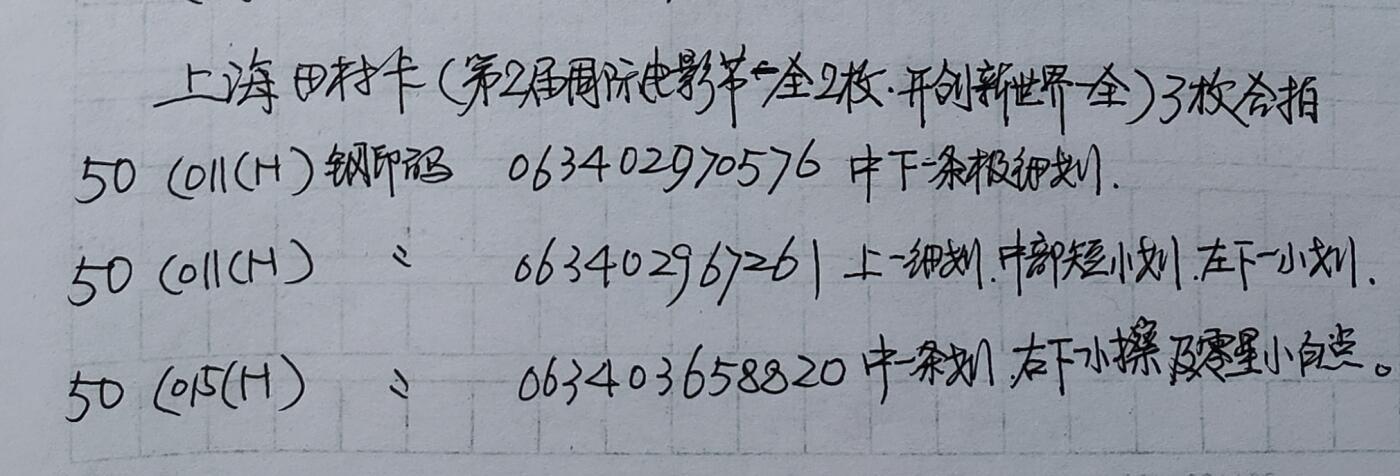 上海田村卡(第2届国际电影节一全2枚.开创新世界一全)3枚合拍
50 (011(H) 钢印码 063402970576 中下一条极细划.
50 (011(H) 〃 063402967261 上一细划.中部短小划.左下一小划.
50 (015(H) 〃 063403658820 中一条划.右下小擦及零星小白点。